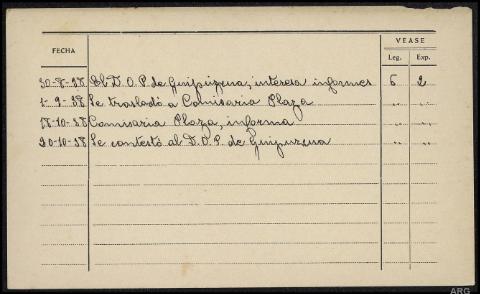 VEASE
FECHA Leg. Exp.
30-8-38 El D.O.P. de Guipuzcua, interesa informes 6 2
1-9-38 Se trasladó a Comisaria Plaza " "
18-10-38 Comisaria Plaza, informa " "
20-10-38 Se contestó al D.O.P. de Guipuzcua " "
ARG